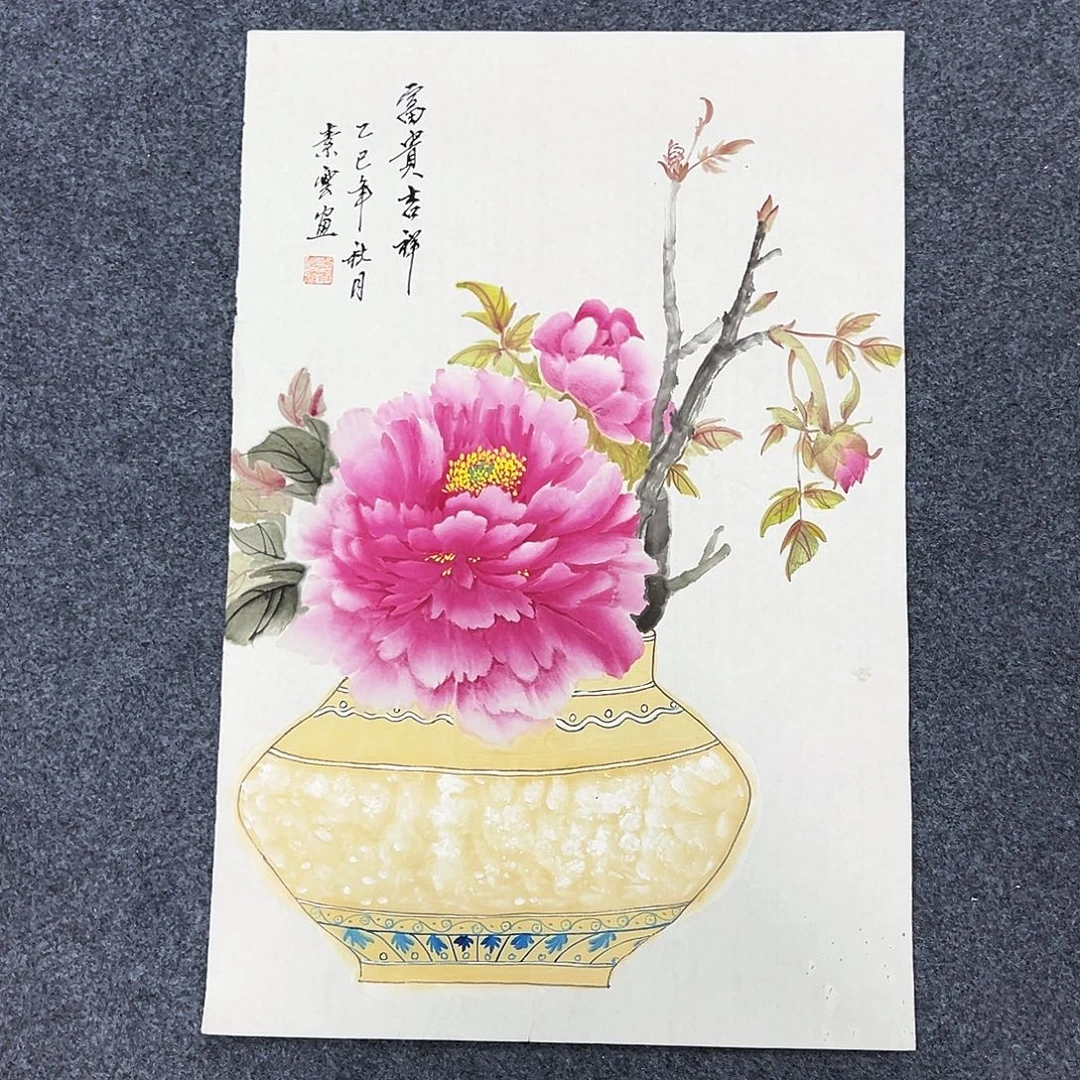 富貴吉祥
乙巳年秋月
素雲画